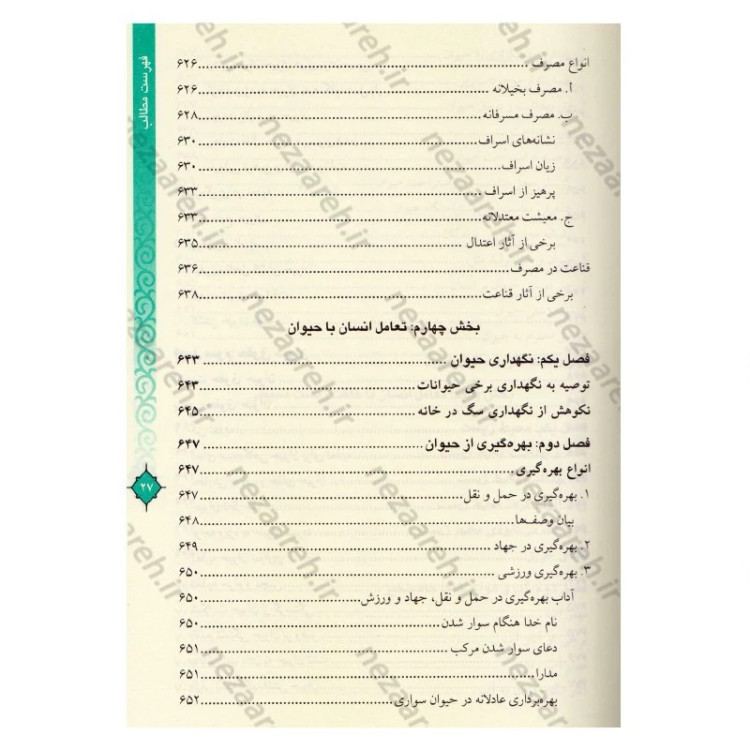 فهرست مطالب
انواع مصرف ........ ۶۲۶
أ. مصرف بخیلانه ........ ۶۲۶
ب. مصرف مسرفانه ........ ۶۲۸
نشانه‌های اسراف ........ ۶۳۰
زیان اسراف ........ ۶۳۰
پرهیز از اسراف ........ ۶۳۳
ج. معیشت معتدلانه ........ ۶۳۳
برخی از آثار اعتدال ........ ۶۳۵
قناعت در مصرف ........ ۶۳۶
برخی از آثار قناعت ........ ۶۳۸
بخش چهارم: تعامل انسان با حیوان
فصل یکم: نگهداری حیوان ........ ۶۴۳
توصیه به نگهداری برخی حیوانات ........ ۶۴۳
نکوهش از نگهداری سگ در خانه ........ ۶۴۵
فصل دوم: بهره‌گیری از حیوان ........ ۶۴۷
انواع بهره‌گیری ........ ۶۴۷
۱. بهره‌گیری در حمل و نقل ........ ۶۴۷
بیان وصف‌ها ........ ۶۴۸
۲. بهره‌گیری در جهاد ........ ۶۴۹
۳. بهره‌گیری ورزشی ........ ۶۵۰
آداب بهره‌گیری در حمل و نقل، جهاد و ورزش ........ ۶۵۰
نام خدا هنگام سوار شدن ........ ۶۵۰
دعای سوار شدن مرکب ........ ۶۵۱
مدارا ........ ۶۵۱
بهره‌برداری عادلانه در حیوان سواری ........ ۶۵۲
۲۷
nezaareh.ir